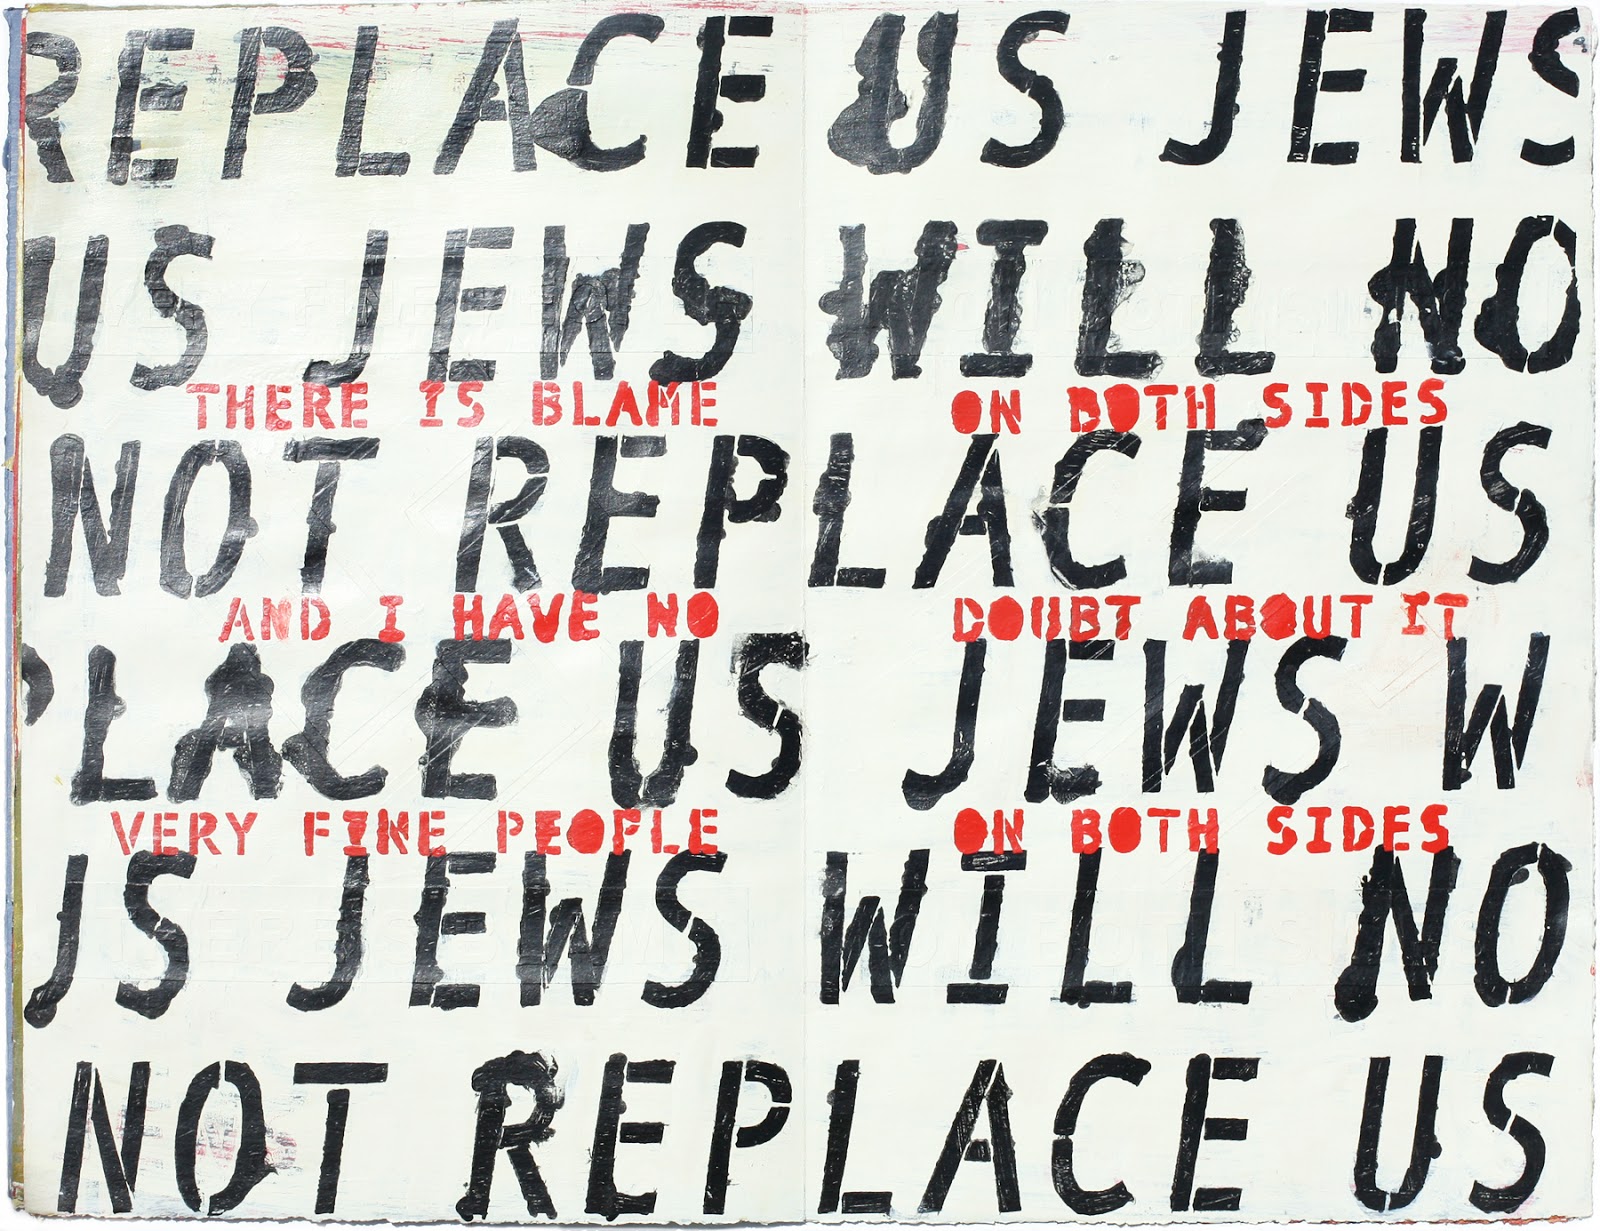 REPLACE US JEWS
US JEWS WILL NO
THERE IS BLAME ON BOTH SIDES
NOT REPLACE US
AND I HAVE NO DOUBT ABOUT IT
PLACE US JEWS W
VERY FINE PEOPLE ON BOTH SIDES
US JEWS WILL NO
NOT REPLACE US